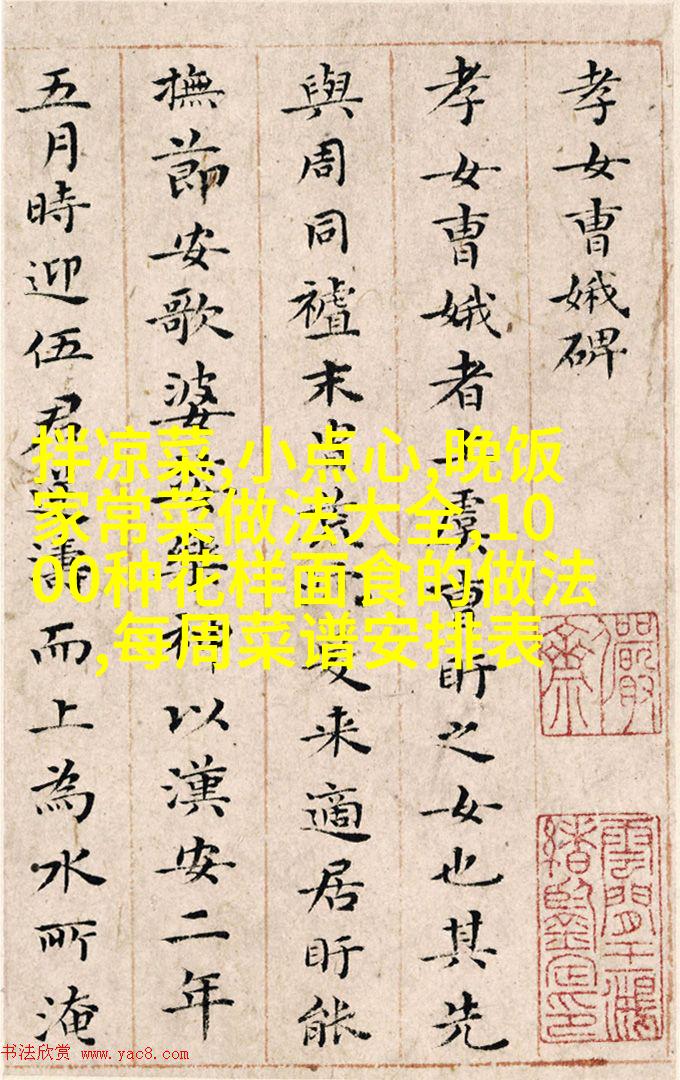 孝女曹娥碑
孝女曹娥者上虞曹盱之女也其先
與周同禮末来適居盱能
撫節安歌婆娑樂神以漢安二年
五月時迎伍君逆濤而上為水所淹
拌凉菜,小点心,晚饭
家常菜做法大全,10
00种花样面食的做法
,每周菜谱安排表
雲間王鴻
緒鑒定印
书法欣赏 www.yac8.com